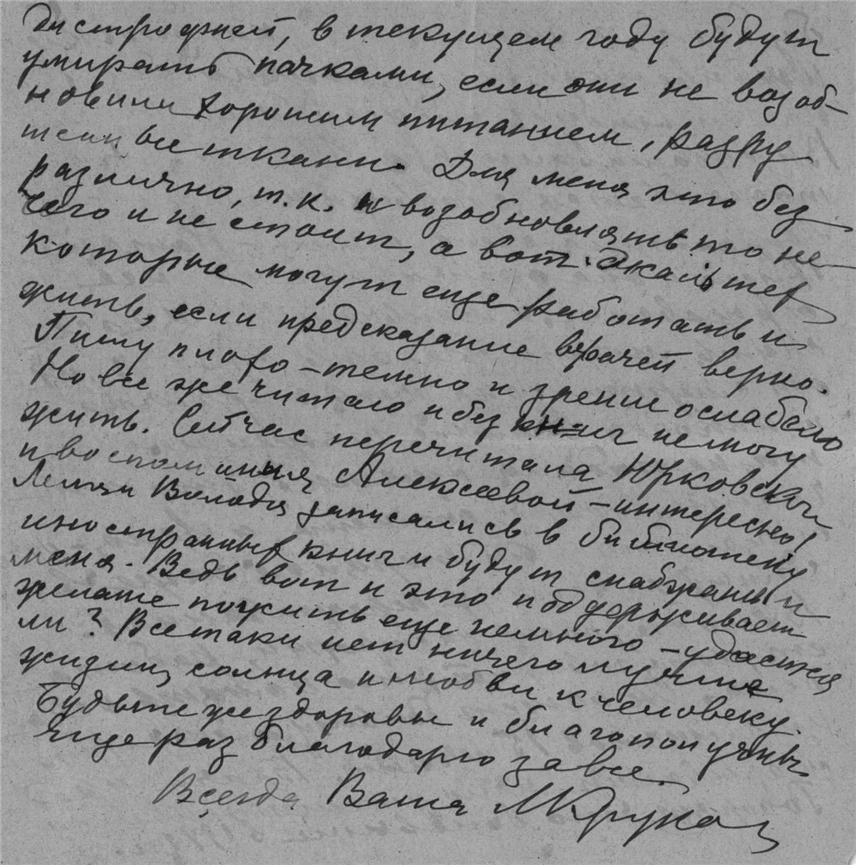 дистрофией, в текущем году будут
умирать пачками, если они не возоб-
новили хорошим питанием, разру
шенные ткани. Для меня это без
различно, т.к. и возобновлять то не-
чего и не стоит, а вот
которые могут еще работать и
жить, если предсказание врачей верно.
Пишу плохо – темно и зрение ослабело
Но все же читаю и без книг не могу
жить. Сейчас перечитала Юрковской
и воспоминия Алексеевой – интересно!
Леля и Володя записались в библиотеку
иностранных книг и будут снабжать и
меня. Ведь вот и это поддерживает
желание пожить еще немного – удастся
ли? Всетаки нет ничего лучше
жизни, солнца и любви к человеку.
Будьте же здоровы и благополучны.
Еще раз благодарю за все
Всегда Ваша